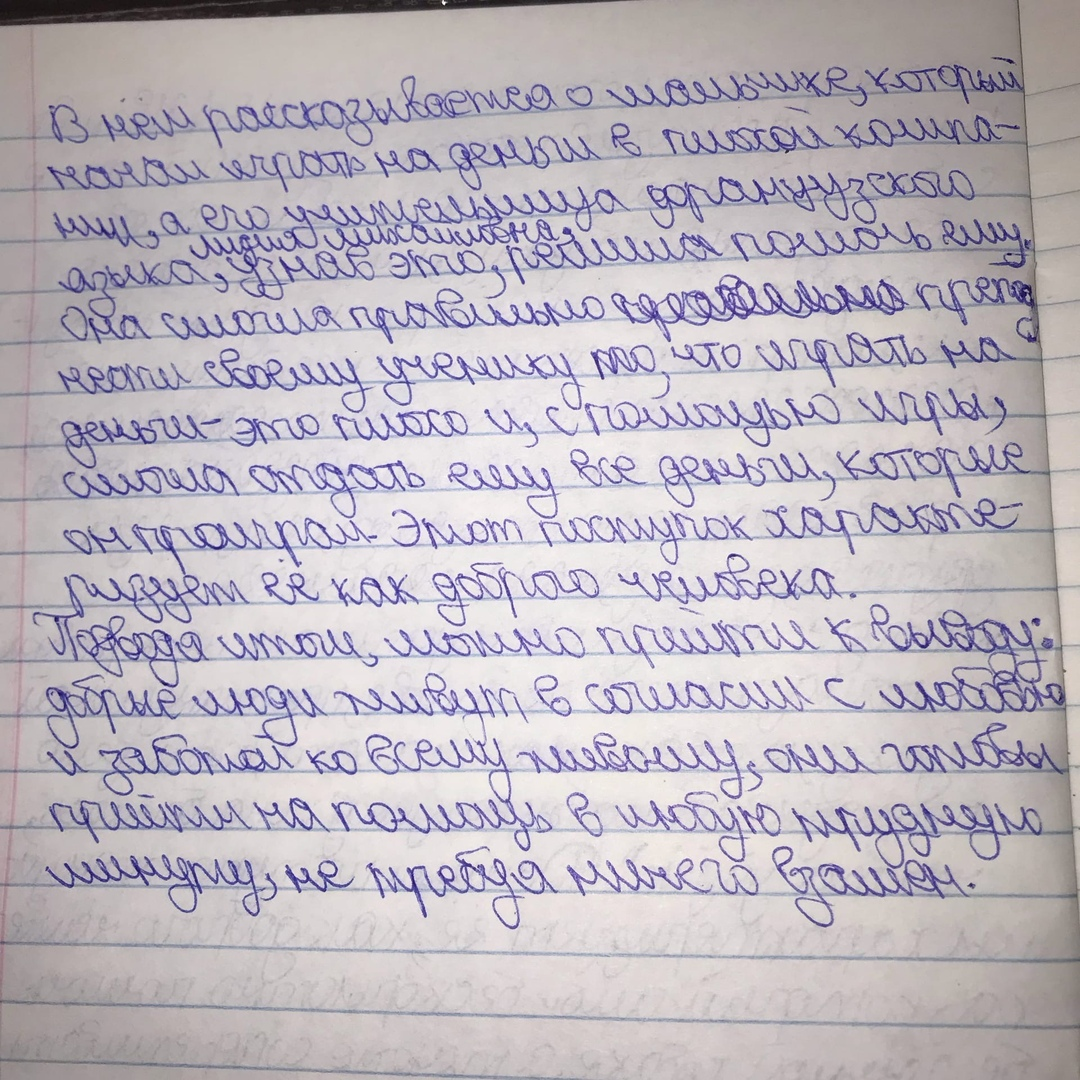 В нём рассказывается о мальчике, который
начал играть на деньги в плохой компа-
нии, а его учительница французского
Лидия Михайловна,
языка, узнав это, решила помочь ему.
Она смогла правильно препод
нести своему ученику то, что играть на
деньги - это плохо и, с помощью игры,
смогла отдать ему все деньги, которые
он проиграл. Этот поступок характе-
ризует её как доброго человека.
Подводя итог, можно прийти к выводу:
добрые люди живут в согласии с любовью
и заботой ко всему живому, они готовы
прийти на помощь в любую трудную
минуту, не требуя ничего взамен.